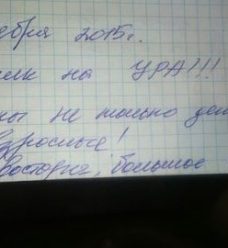 ебря 2015г.
лк на УРА!!!
ны не только дет
взрослые!
Восторге, большое